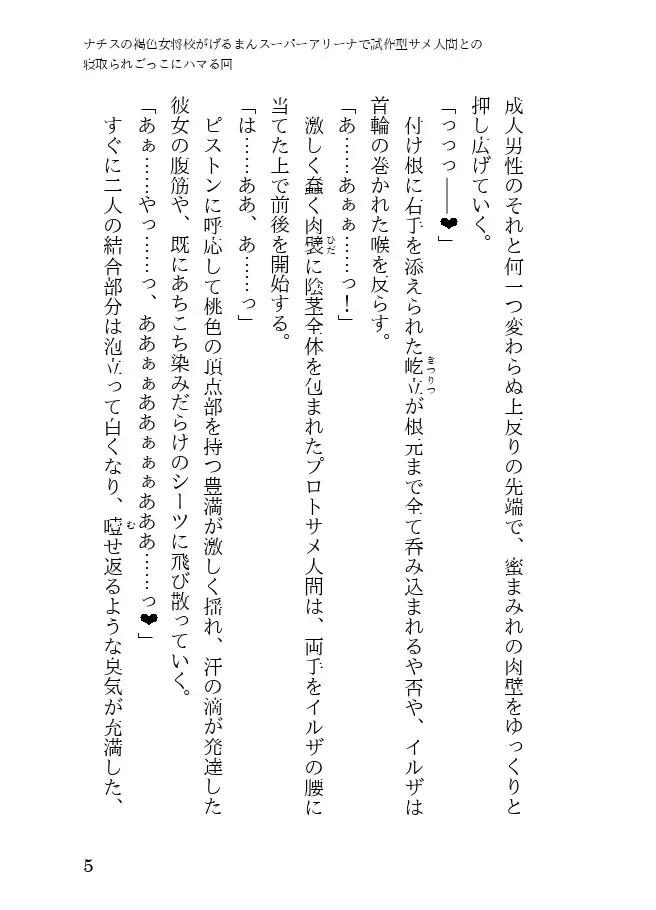 ナチスの褐色女将校がげるまんスーパーアリーナで試作型サメ人間との
寝取られごっこにハマる回
成人男性のそれと何一つ変わらぬ上反りの先端で、蜜まみれの肉壁をゆっくりと
押し広げていく。
「っっっ――❤」
付け根に右手を添えられた屹立が根元まで全て呑み込まれるや否や、イルザは
首輪の巻かれた喉を反らす。
「あ……あぁぁ……っ！」
激しく蠢く肉襞に陰茎全体を包まれたプロトサメ人間は、両手をイルザの腰に
当てた上で前後を開始する。
「は……ああ、あ……っ」
ピストンに呼応して桃色の頂点部を持つ豊満が激しく揺れ、汗の滴が発達した
彼女の腹筋や、既にあちこち染みだらけのシーツに飛び散っていく。
「あぁ……やっ……っ、ああぁぁああぁぁぁあああ……っ❤」
すぐに二人の結合部分は泡立って白くなり、噎せ返るような臭気が充満した、
5